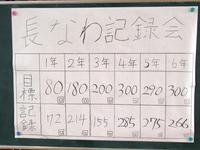 長なわ記録会
1年 2年 3年 4年 5年 6年
目標 80回 180回 200回 300回 290回 300回
記録 72回 214回 155回 285回 275回 266回